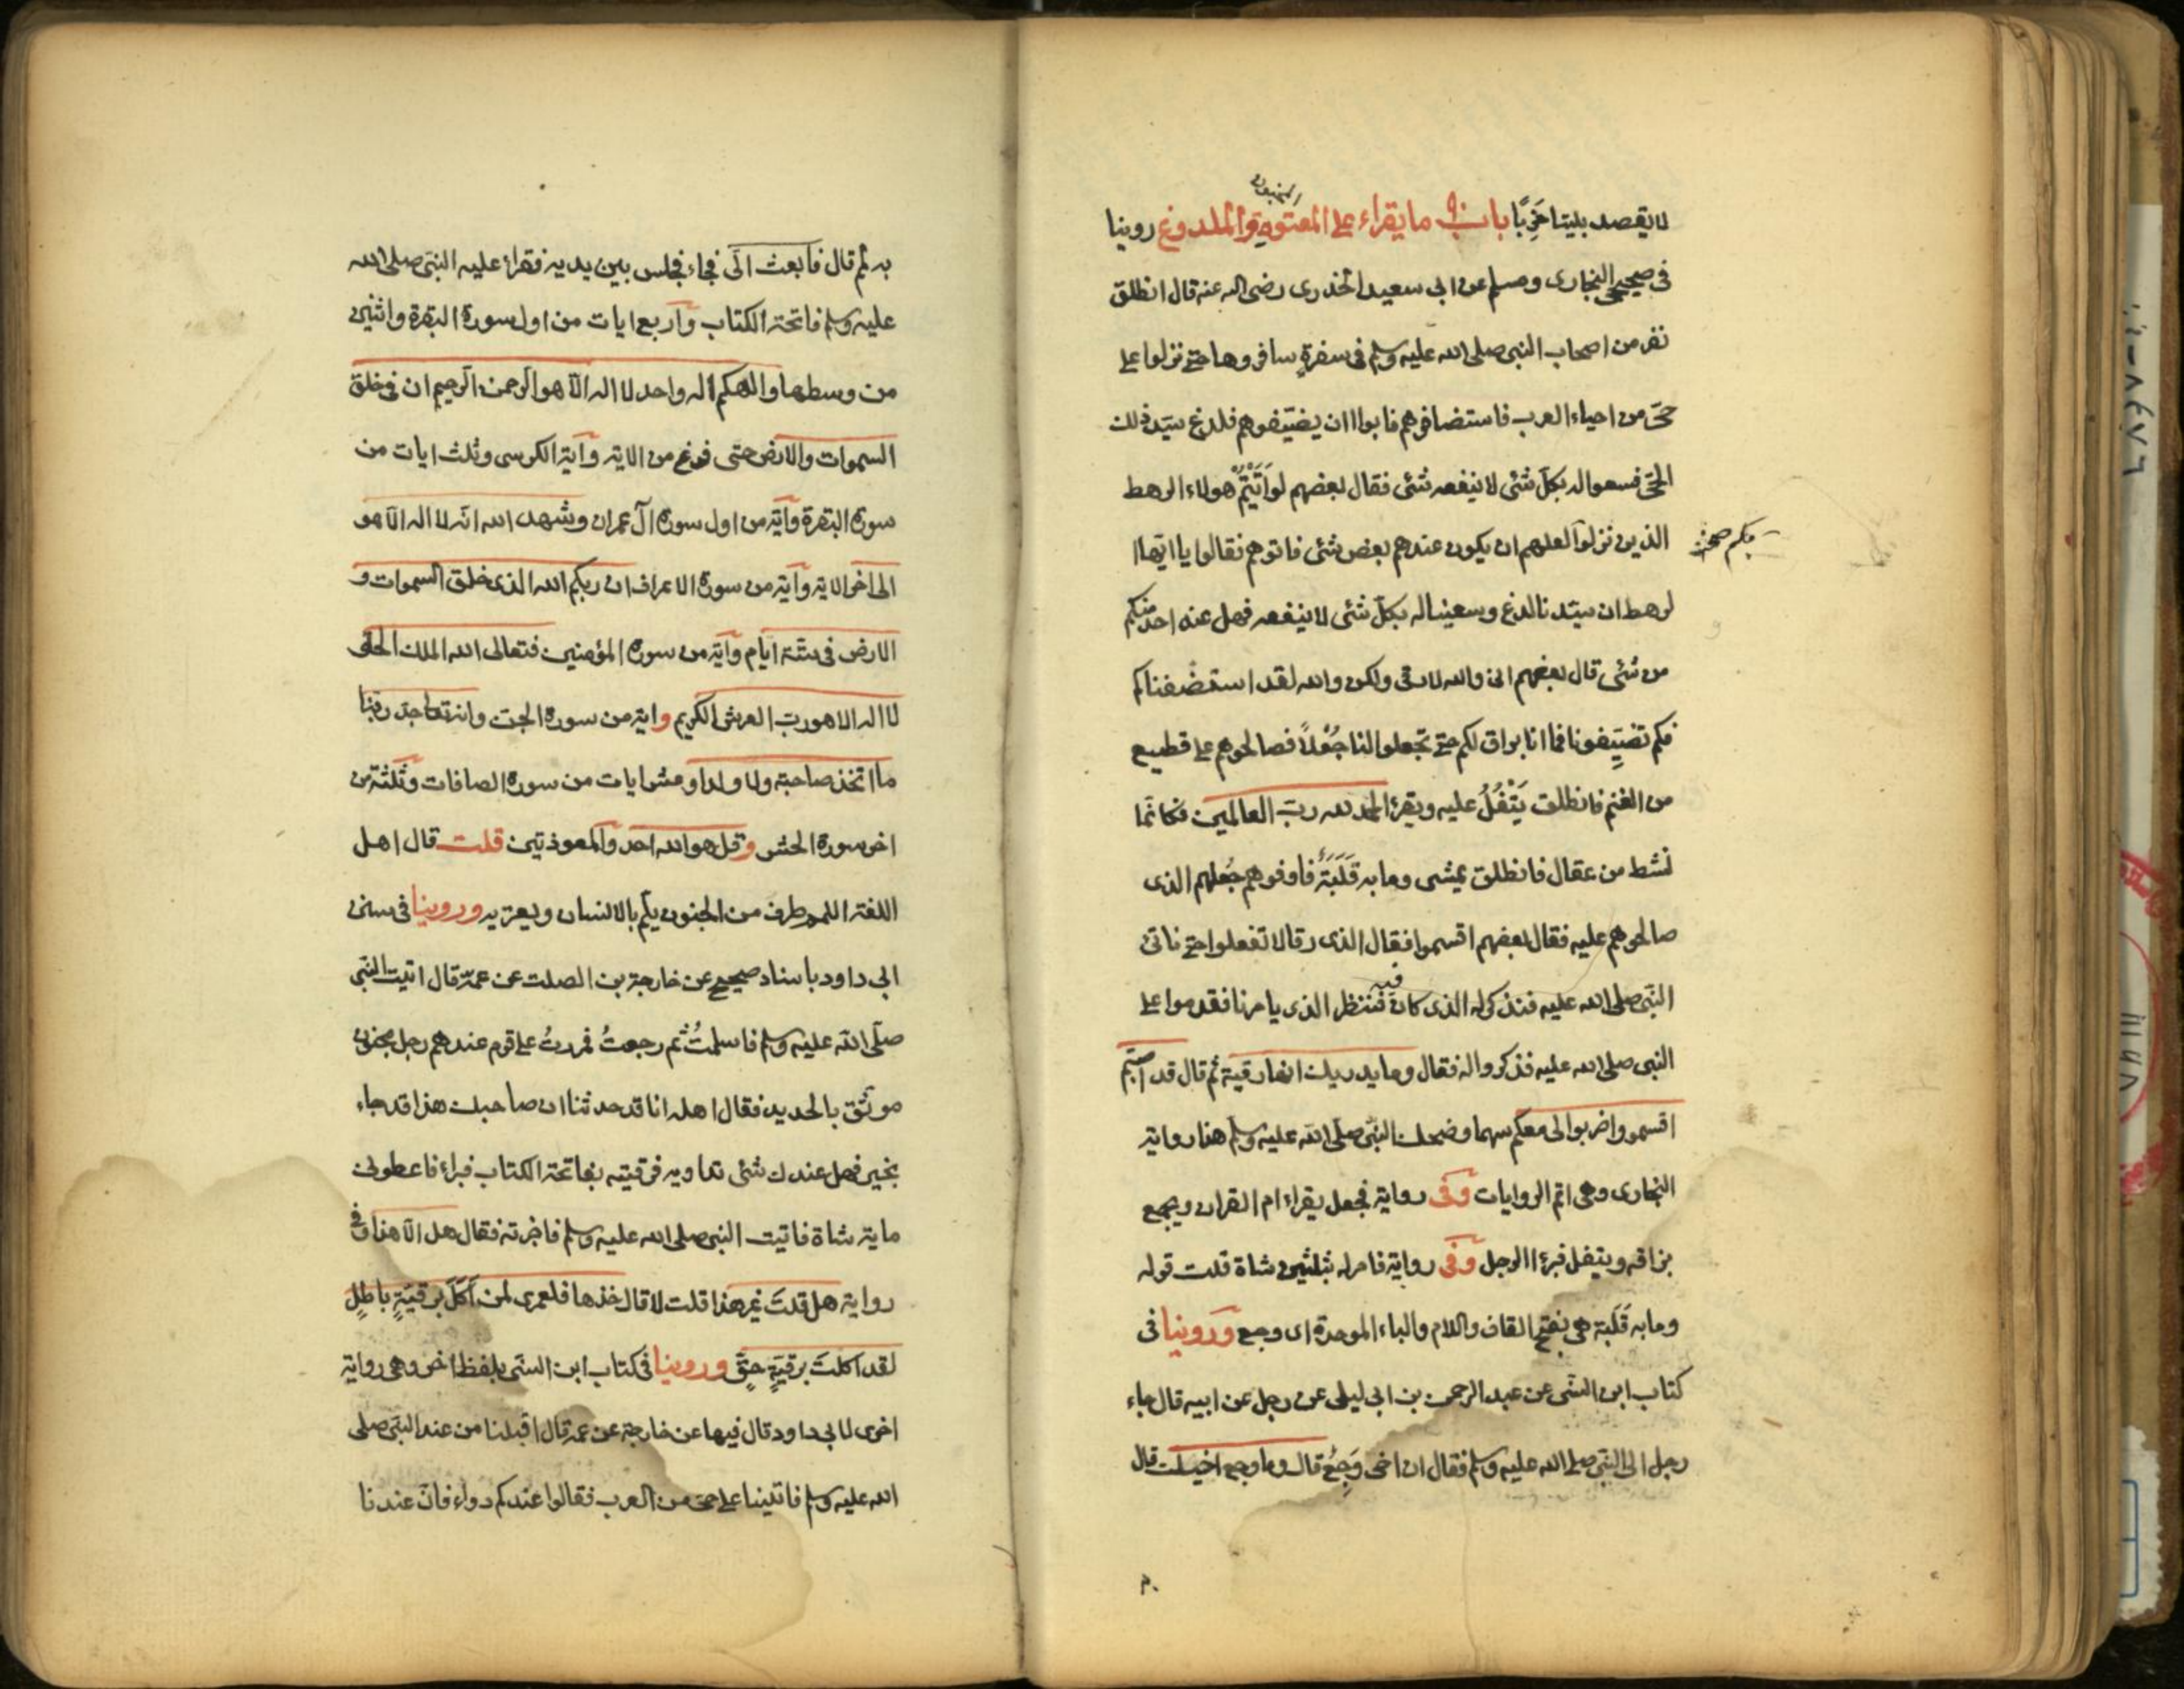 لا يقصد بليتا خَرِبًا باب ما يقراء على المعتوه والملدوغ روينا
فى صحيحي البخارى ومسلم عن ابى سعيد الخذرى رضى الله عنه قال انطلق
نفر من اصحاب النبى صلى الله عليه وسلم فى سفرةٍ سافروها حتى نزلوا على
حىّ من احياء العرب فاستضافوهم فابوا ان يضيّفوهم فلدغ سيّد ذلك
الحىّ فسعوا له بكلّ شئى لا ينفعه شئى فقال بعضهم لو اَتَيْتُمْ هولاء الرهط
الذين نزلوا لعلهم ان يكون عندهم بعض شئى فاتوهم فقالوا يا ايّها ا
بكم صح
لرهط ان سيّدنا لدغ وسعينا له بكلّ شئى لا ينفعه فهل عند احد منكم
من شئى قال بعضهم انى والله لارقى ولكن والله لقد استضفناكم
فكم تضيِّفونا فما انا براق لكم حتى تجعلوا لنا جُعْلاً فصالحوهم على قطيع
من الغنم فانطلق يَتْفُلُ عليه ويقرؤ الحمد لله ربّ العالمين فكانّما
نشط من عقال فانطلق يمشى وما به قَلَبَةٌ فاوفوهم جُعلهم الذى
صالحوهم عليه فقال بعضهم اقسموا فقال الذى رقا لا تفعلوا حتى ناتى
النّبى صلى الله عليه فنذكر له الذى كان فننظر الذى يامرنا فقدموا على
النبى صلى الله عليه فذكروا له فقال وما يدريك انها رقية ثم قال قد اصبتم
اقسموا واضربوا لى معكم سهما وضحك النّبى صلّى اللّه عليه وسلم هذا رواية
البخارى وهى اتم الروايات وفى رواية فجعل يقراء ام القران ويجمع
بزاقه ويتفل فبرؤ الرجل وفى رواية فامر له بثلثين شاة قلت قوله
وما به قَلَبَة هى بفتح القاف واللام والباء الموحدة اى وجع وروينا فى
كتاب ابن السّنى عن عبد الرحمن بن ابى ليلى عن رجل عن ابيه قال جاء
رجل الى النّبى صلى الله عليه وسلم فقال ان اخى وَجِعٌ قال وما وجع اخيك قال
به لمم قال فابعث الىّ فجاء فجلس بين يديه فقراء عليه النبّى صلى الله
عليه وسلم فاتحة الكتاب واربع ايات من اول سورة البقرة واثنين
من وسطها والهكم اله واحد لا اله الّا هو الرّحمن الرّحيم ان فى خلق
السموات والارض حتى فرغ من الاية وآية الكرسى وثلث ايات من
سورة البقرة وآية من اول سورة آل عمران وشهد الله انّه لا اله الّا هو
الى اخر الاية وآية من سورة الاعراف ان ربكم الله الذى خلق السموات و
الارض فى ستّة ايّام وآية من سورة المؤمنين فتعالى الله الملك الحقّ
لا اله الا هو ربّ العرش الكريم واية من سورة الجن وانه تعالى جدّ ربّنا
ما اتخذ صاحبة ولا ولدا وعشر ايات من سورة الصافات وثلثة من
اخر سورة الحشر وقل هو الله احد والمعوذتين قلت قال اهل
اللغة اللمم طرف من الجنون يلّم بالانسان ويعتريه وروينا فى سنن
ابى داود باسناد صحيح عن خارجة بن الصلت عن عمّه قال اتيت النّبى
صلّى اللّه عليه وسلم فاسلمتُ ثم رجعتُ فمررتُ على قوم عندهم رجل مجنون
موثق بالحديد فقال اهله انا قد حدثنا ان صاحبك هذا قد جاء
بخير فهل عندك شئى تداويه فرقيته بفاتحة الكتاب فبراء فاعطونى
ماية شاة فاتيت النبى صلى الله عليه وسلم فاخبرته فقال هل الّا هذا وفى
رواية هل قلتَ غير هذا قلت لا قال خذها فلعمرى لمن اكَلَ برقيةٍ باطلٍ
لقد اكلتَ برقيةٍ حقٍّ وروينا فى كتاب ابن السنّى بلفظ اخر وهى رواية
اخرى لابى داود قال فيها عن خارجة عن عمه قال اقبلنا من عند النبّى صلى
الله عليه وسلم فاتينا على حىّ من العرب فقالوا عندكم دواء فانّ عندنا